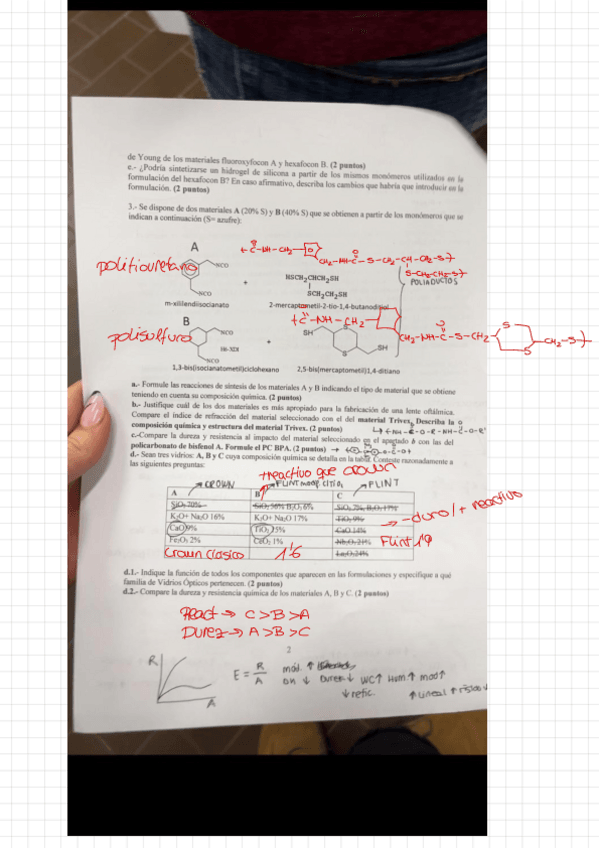 de Young de los materiales fluoroxyfocon A y hexafocon B. (2 puntos)
c.- ¿Podría sintetizarse un hidrogel de silicona a partir de los mismos monómeros utilizados en la
formulación del hexafocon B? En caso afirmativo, describa los cambios que habría que introducir en la
formulación. (2 puntos)
3.- Se dispone de dos materiales A (20% S) y B (40% S) que se obtienen a partir de los monómeros que se
indican a continuación (S= azufre):
A
politiouretano
NCO
NCO
+
HSCH2CHCH2SH
SCH2CH2SH
S-CH2-CH2-S}
POLIADUCTOS
m-xililendiisocianato
2-mercaptometil-2-tio-1,4-butanoditiol
B
polisulfuro
NCO
NCO
+
SH
S
S
SH
1,3-bis(isocianatometil)ciclohexano
2,5-bis(mercaptometil)1,4-ditiano
a.- Formule las reacciones de síntesis de los materiales A y B indicando el tipo de material que se obtiene
teniendo en cuenta su composición química. (2 puntos)
b.- Justifique cuál de los dos materiales es más apropiado para la fabricación de una lente oftálmica.
Compare el índice de refracción del material seleccionado con el del material Trivex. Describa la
composición química y estructura del material Trivex. (2 puntos)
c.-Compare la dureza y resistencia al impacto del material seleccionado en el apartado b con las del
policarbonato de bisfenol A. Formule el PC BPA. (2 puntos)
d.- Sean tres vidrios: A, B y C cuya composición química se detalla en la tabla. Conteste razonadamente a
las siguientes preguntas:
+reactivo que crown
CROWN
FLINT
A B C
SiO2 70% SiO2 56% B2O3 6% SiO2 7% B2O3 17%
K2O+ Na2O 16% K2O+ Na2O 17% TiO2 9%
CaO 9% TiO2 15% CaO 14%
Fe2O3 2% CeO2 1% Nb2O5 21%
La2O3 24%
-duro/+ reactivo
Crown clásico
1'6
Flint 1'9
d.1.- Indique la función de todos los componentes que aparecen en las formulaciones y especifique a qué
familia de Vidrios Ópticos pertenecen. (2 puntos)
d.2.- Compare la dureza y resistencia química de los materiales A, B y C. (2 puntos)
React → C>B>A
Durez → A>B>C
2
R
A
E = R/A